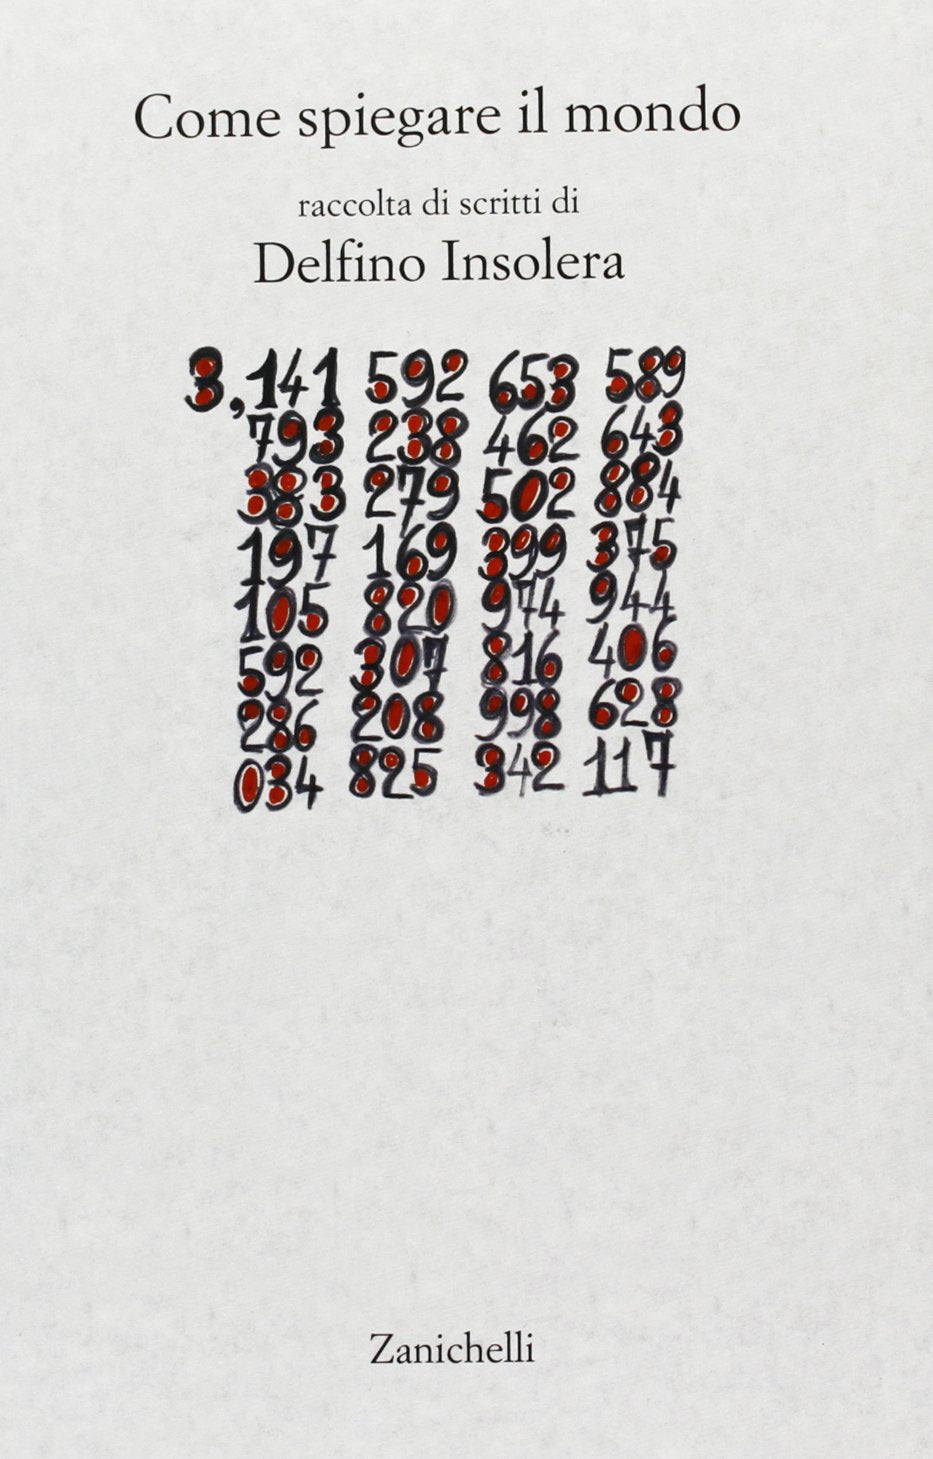 Come spiegare il mondo
raccolta di scritti di
Delfino Insolera
3,141 592 653 589
793 238 462 643
383 279 502 884
197 169 399 375
105 820 974 944
592 307 816 406
286 208 998 628
034 825 342 117
Zanichelli